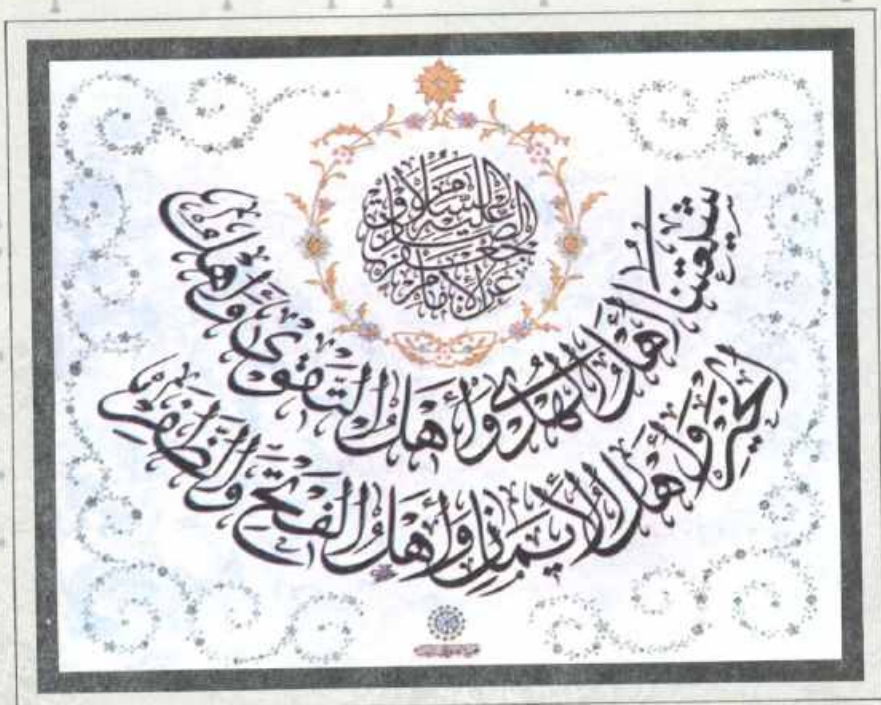 عن الإمام
جعفر الصادق
عليه السلام
شيعتنا أهل الهدى وأهل التقوى وأهل
الخير وأهل الإيمان وأهل الفتح والظفر